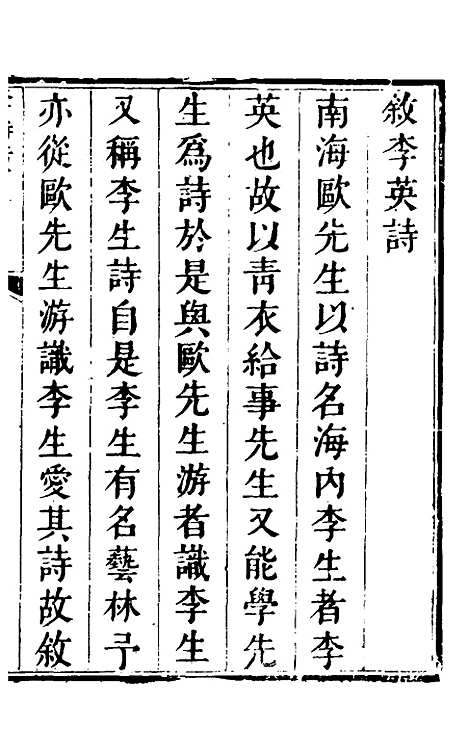 敘李英詩
南海歐先生以詩名海内李生者李
英也故以青衣給事先生又能學先
生爲詩於是與歐先生游者識李生
又稱李生詩自是李生有名藝林予
亦從歐先生游識李生愛其詩故敘